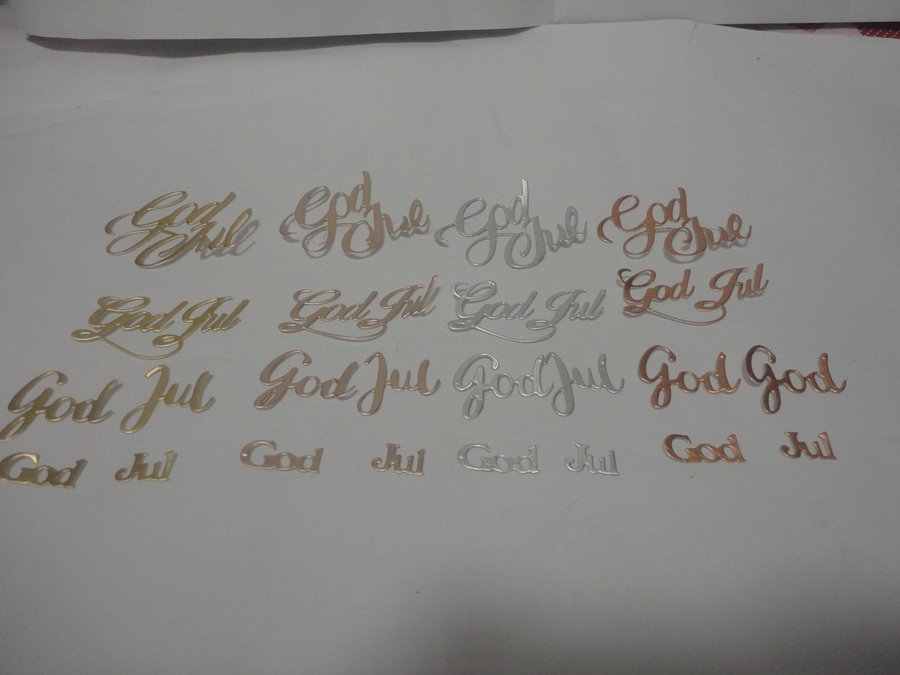 God Jul God Jul God Jul God Jul
God Jul God Jul God Jul God Jul
God Jul God Jul God Jul God God
God Jul God Jul God Jul God Jul